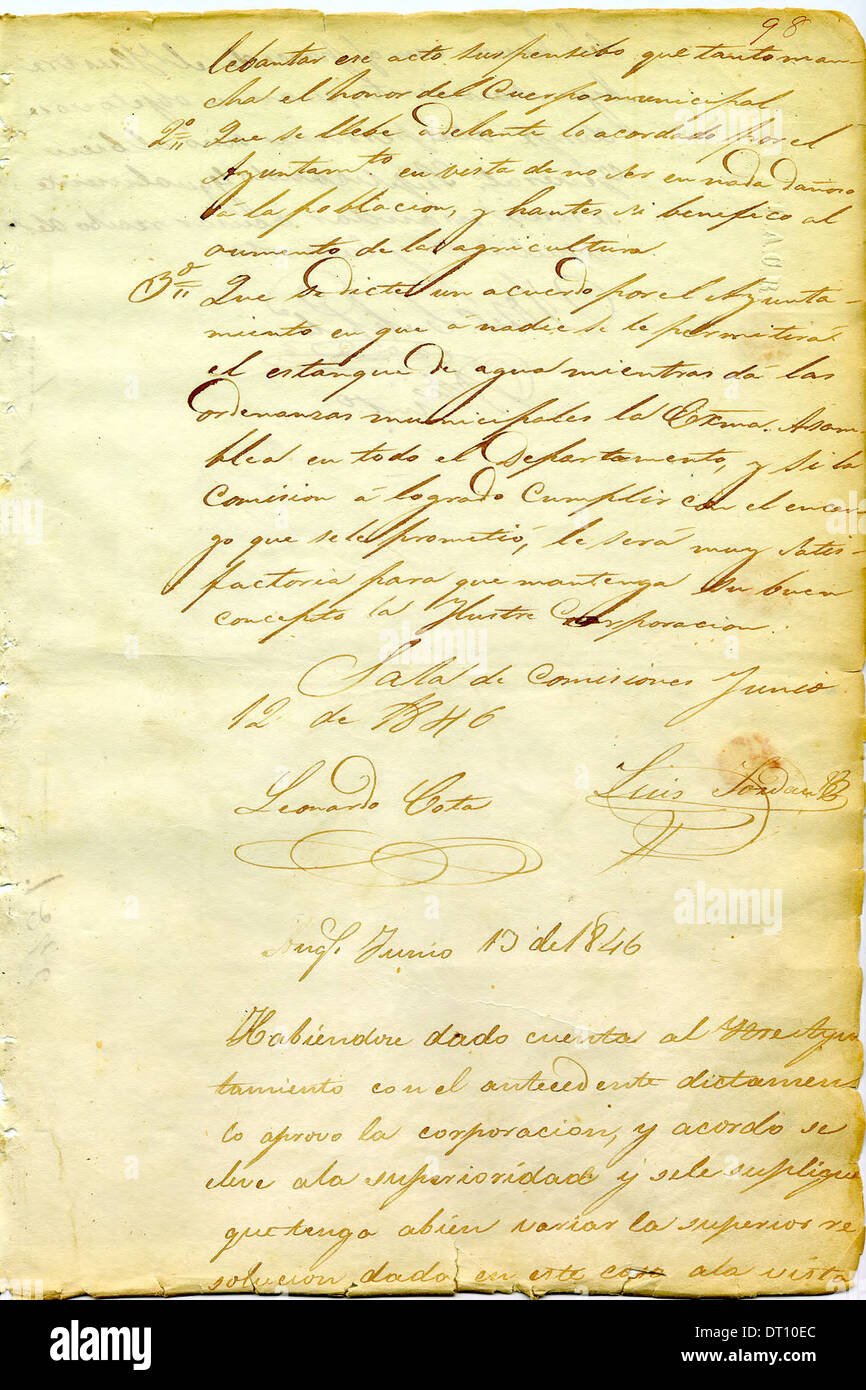 98
lebantar ese acto suspensibo que tanto man-
cha el honor del Cuerpo municipal
2º Que se llebe adelante lo acordado por el
Ayuntamto. en vista de no ser en nada dañoso
á la poblacion, y hantes si benefico al
aumento de la agricultura
3º Que se dicte un acuerdo por el Ayunta-
miento en que á nadie se le permitirá
el estanque de agua mientras dá las
ordenanzas municipales la Exma. Asam-
blea en todo el Departamento, y si la
Comision á logrado Cumplir con el encar-
go que sele prometió, le será muy satis-
factoria para que mantenga su buen
concepto la Ylustre Corporacion.
Sala de Comisiones Junio
12 de 1846
Leonardo Cota Luis Jordan
Angs. Junio 13 de 1846
Habiéndose dado cuenta al Ytre Ayun
tamiento con el antecedente dictamen
lo aprovo la corporacion, y acordo se
eleve ala superioridad y sele suplique
que tenga abien variar la superior re
solucion dada en este caso ala vista
alamy
a
alamy
a
alamy
Image ID: DT10EC
www.alamy.com